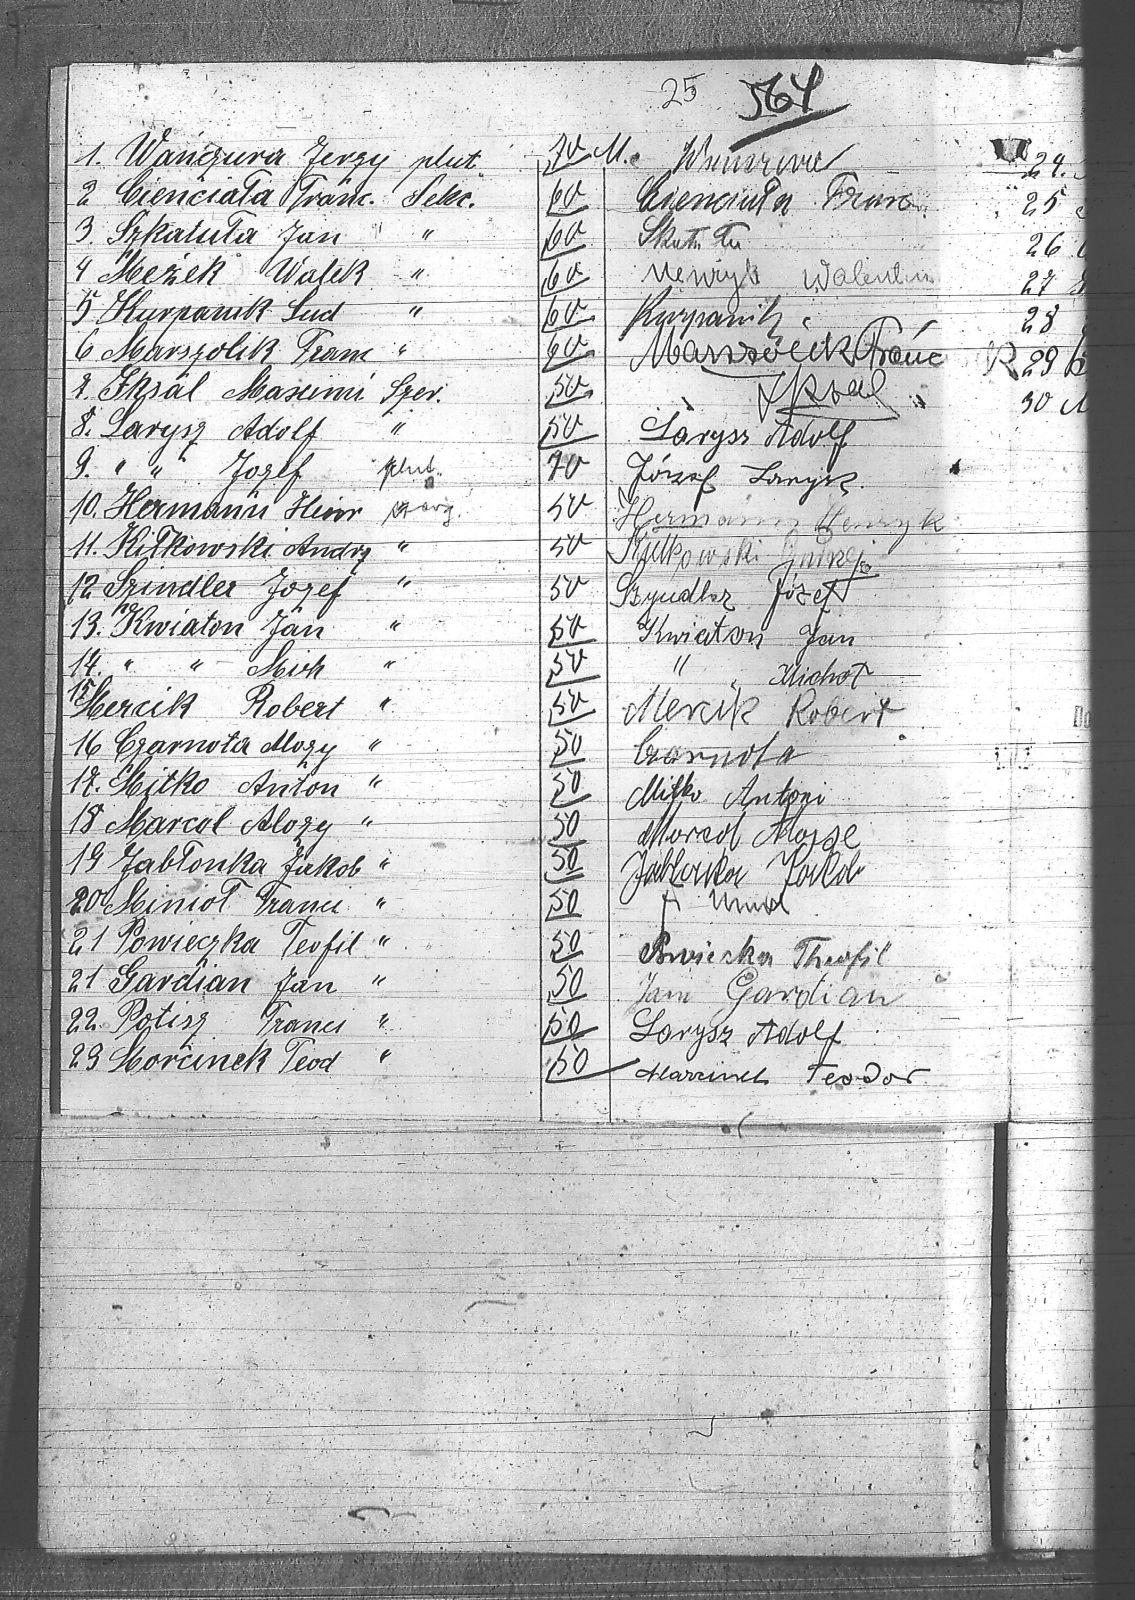 25 564
1. Wańczura Jerzy plut. 70 M.
2 Cienciała Franc. Sekc. 60 Cienciała Franc.
3. Szkatuła Jan " 60
4 Mężek Walek " 60 Walentin
5 Kurpanik Lud " 60 Kurpanik
6 Marszolik Franc " 60 Marszolik Franc
7. Iksal Maximi Szer. 50 Iksal
8. Larysz Adolf " 50 Larysz Adolf
9. " " Jozef plut. 70 Józef Larysz
10. Hermann Heinr 50 Hermann Henryk
11. Kitkowski Andrz " 50
12 Szindler Jozef " 50 Szyndler Józef
13. Kwiaton Jan " 50 Kwiaton Jan
14. " " Mich " 50 " " Michał
15 Mercik Robert " 50 Mercik Robert
16 Czarnota Alozy " 50 Czarnota
17. Mitko Anton " 50 Mitko Antoni
18 Marcol Alozy " 50 Marcol
19 Jabłonka Jakob " 50 Jabłonka Jakob
20 Minioł Franci " 50
21 Powieczka Teofil " 50 Theofil
21 Gardian Jan " 50 Jan Gardian
22. Potisz Franci " 50 Larysz Adolf
23 Morcinek Teod " 50 Teodor
24.
25
26
27
28
R 29
30